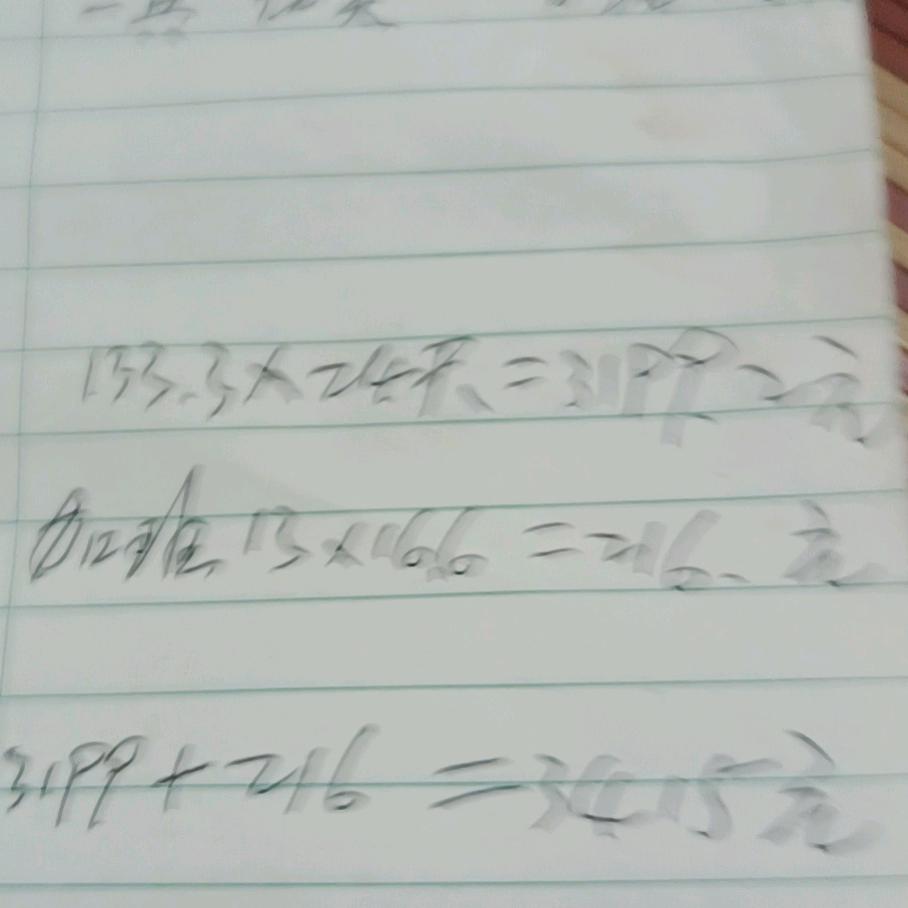 一共
133.3×24天=3199.2元
加班 13×16.6=216元
3199+216=3415元